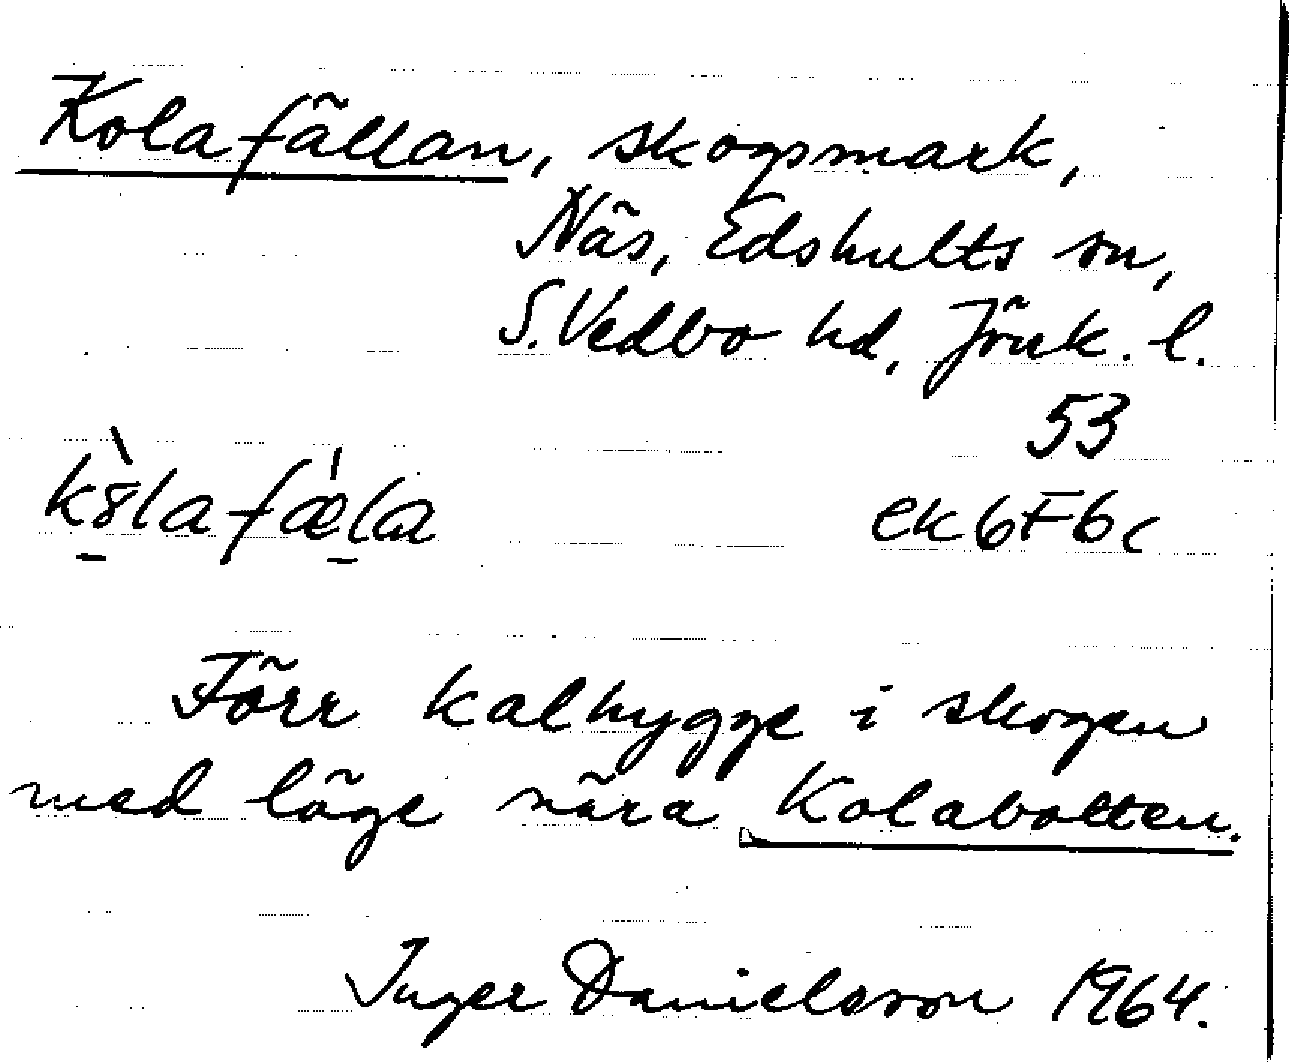 Kolafällan, skogsmark,
Näs, Edshults sn,
S. Vedbo hd, Jönk. l.
53
ek 6F6c
Förr kalhygge i skogen
med läge nära Kolabotten.
Inger Danielsson 1964.